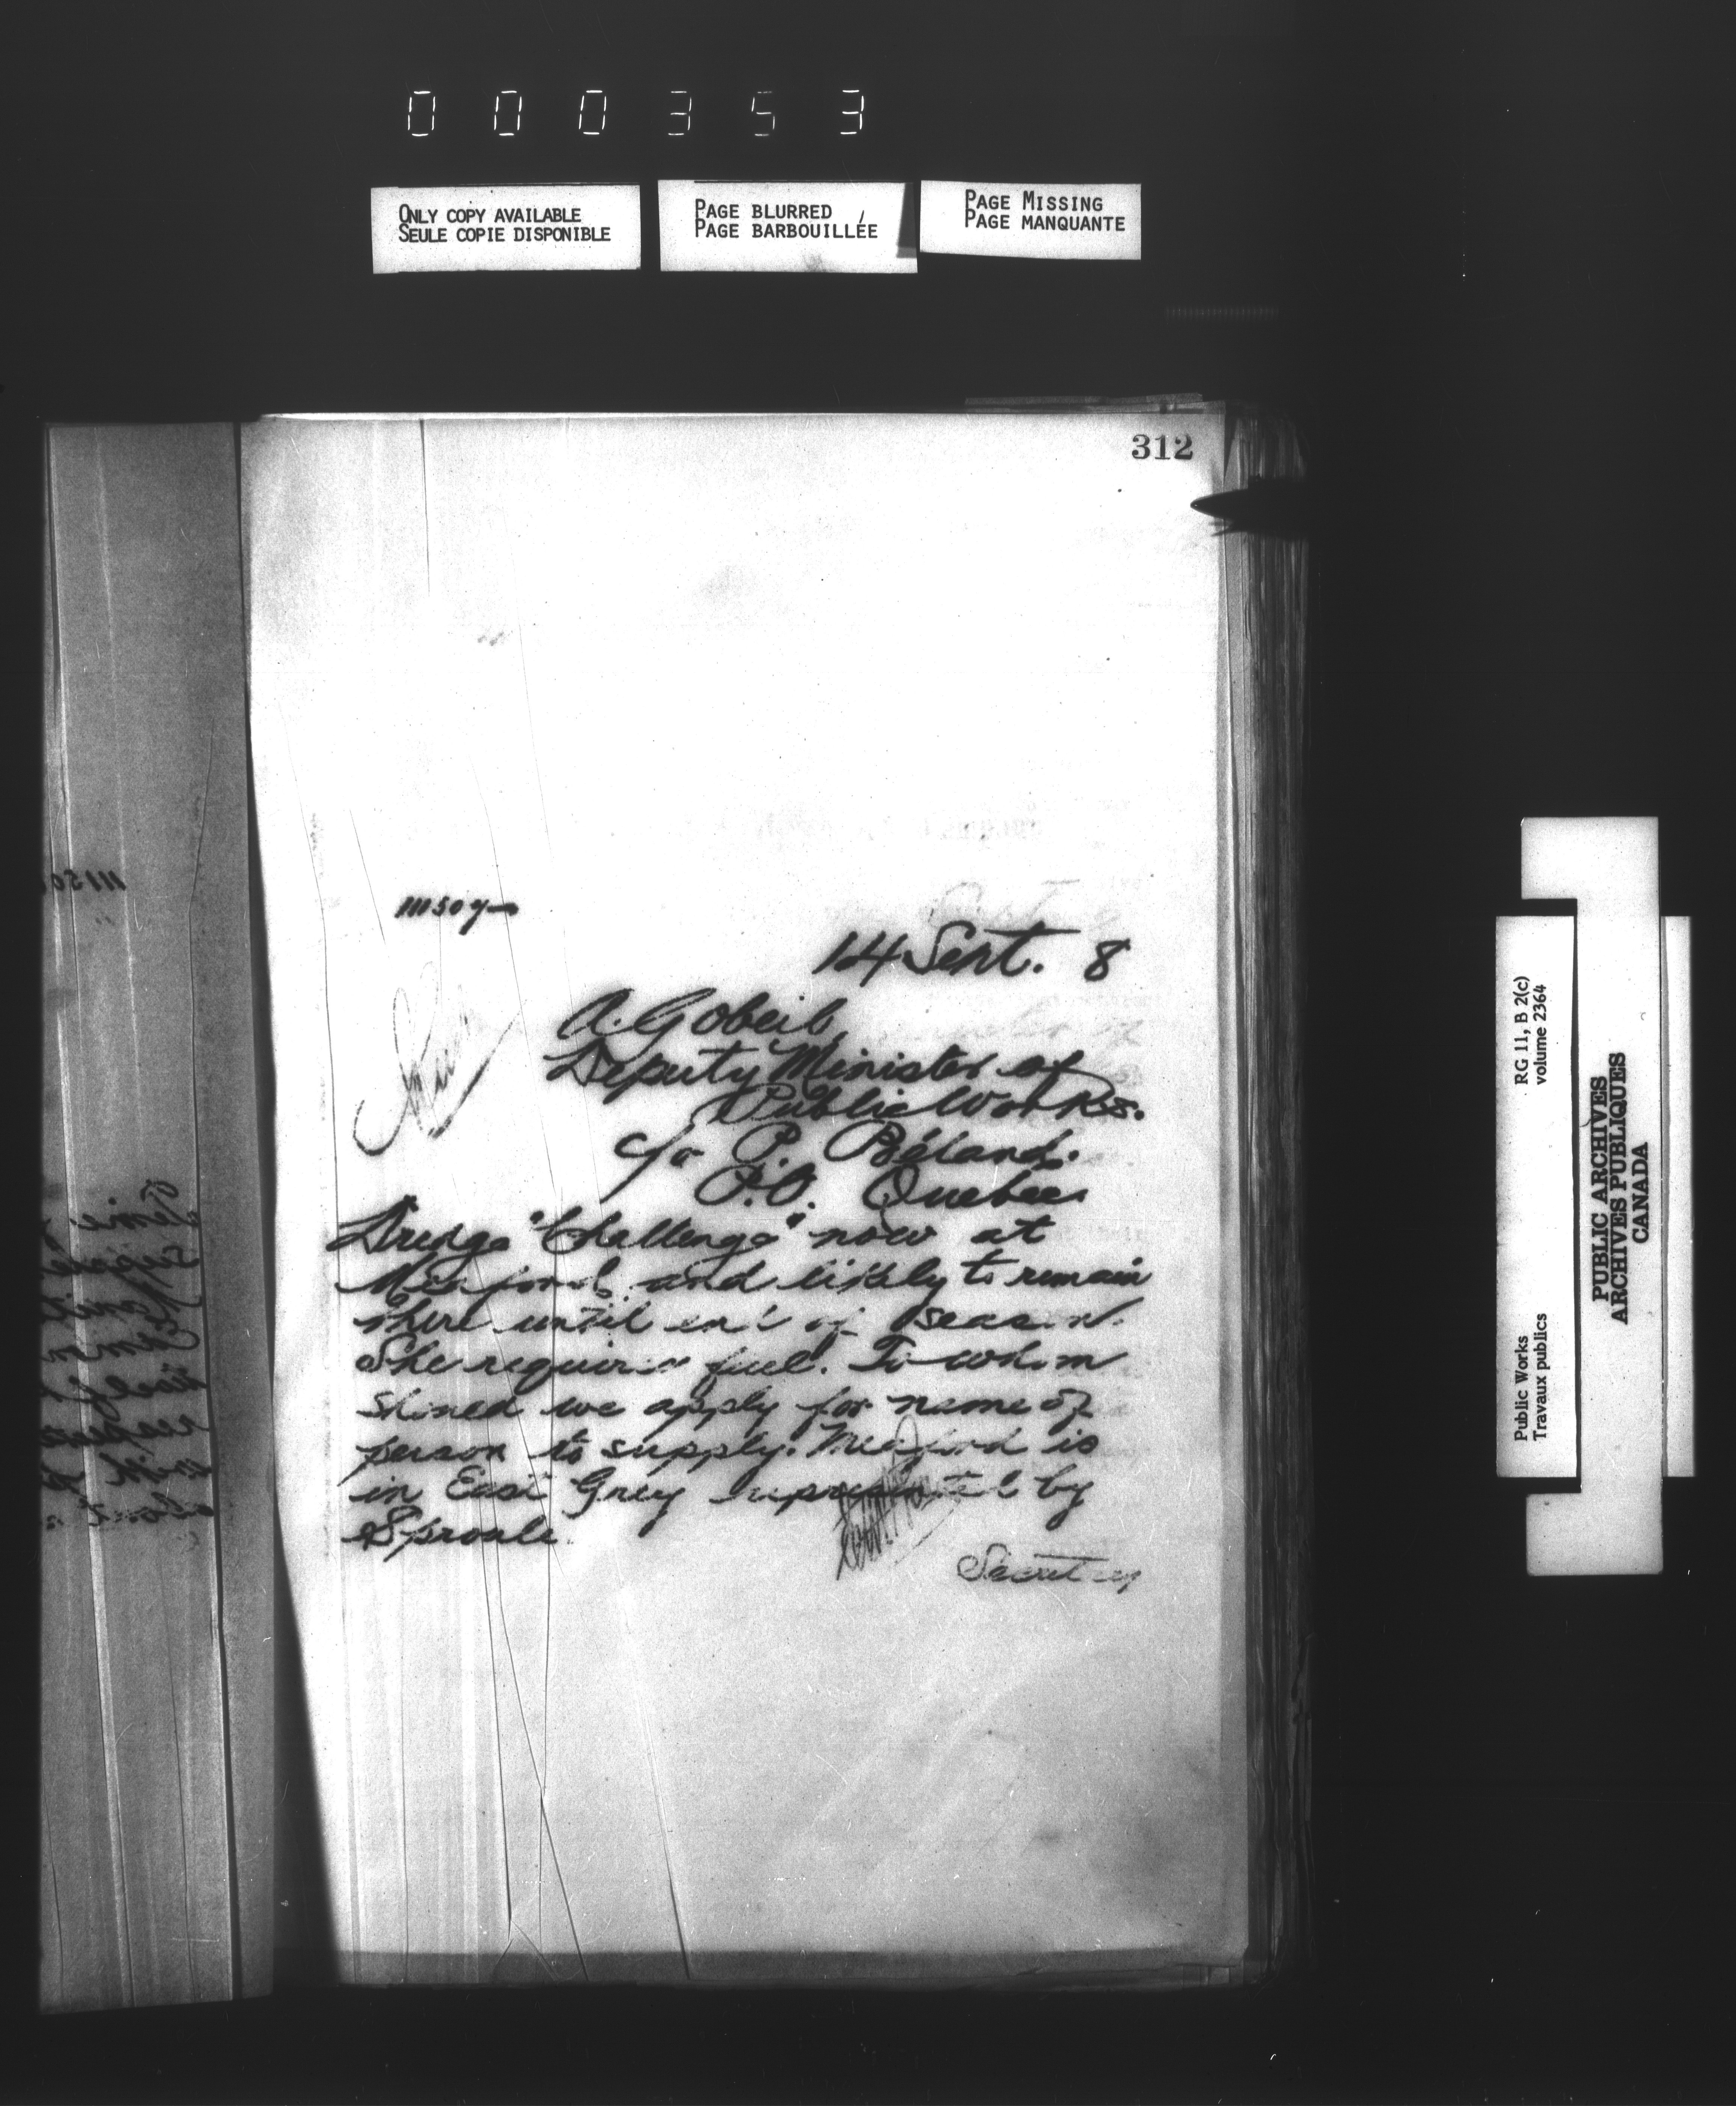 000353
ONLY COPY AVAILABLE
SEULE COPIE DISPONIBLE
PAGE BLURRED
PAGE BARBOUILLÉE
PAGE MISSING
PAGE MANQUANTE
312
14 Sept. 8
A. Gobeil,
Deputy Minister of
Public Works.
c/o P. Béland.
P.O. Quebec
Dredge "Challenge" now at
Meaford and likely to remain
there until end of season.
She requires fuel. To whom
should we apply for name of
person to supply. Meaford is
in East Grey represented by
Sproule.
Secretary
Public Works
Travaux publics
RG 11, B 2(c)
volume 2364
PUBLIC ARCHIVES
ARCHIVES PUBLIQUES
CANADA